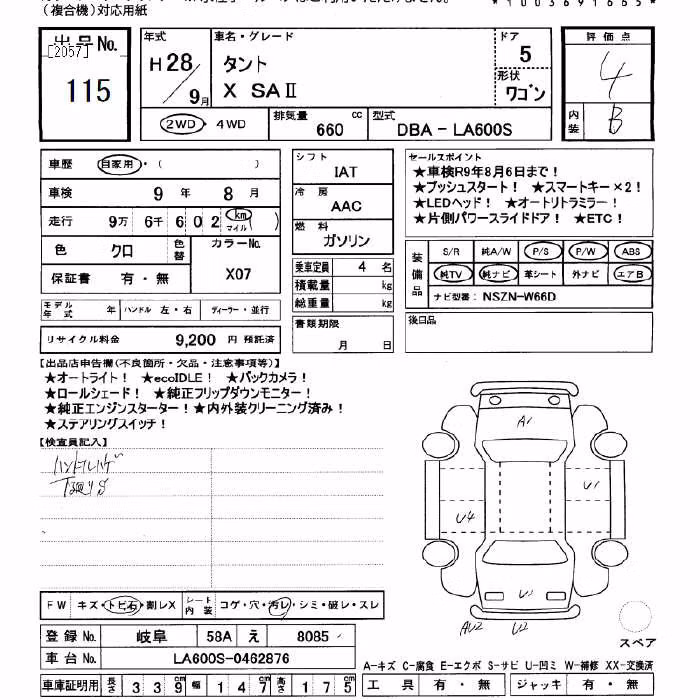 (複合機)対応用紙
出品No.
[2057]
115
年式
H28/9月
車名・グレード
タント
X SAⅡ
ドア
5
形状
ワゴン
評価点
4
内装
B
2WD・4WD
排気量 660 cc
型式 DBA-LA600S
車歴 自家用・( )
車検 9年 8月
走行 9万 6千 6 0 2 (km マイル)
色 クロ
色替
カラーNo. X07
保証書 有・無
シフト IAT
冷房 AAC
燃料 ガソリン
乗車定員 4 名
積載量 kg
総重量 kg
セールスポイント
★車検R9年8月6日まで! 
★プッシュスタート! ★スマートキー×2!
★LEDヘッド! ★オートリトラミラー!
★片側パワースライドドア! ★ETC!
装備品
S/R 純A/W P/S P/W ABS
純TV 純ナビ 革シート 外ナビ エアB
ナビ型番: NSZN-W66D
モデル年式 年 ハンドル 左・右 ディーラー・並行
書類期限 月 日
後日品
リサイクル料金 9,200 円 預託済
【出品店申告欄(不良箇所・欠品・注意事項等)】
★オートライト! ★ecoIDLE! ★バックカメラ!
★ロールシェード! ★純正フリップダウンモニター!
★純正エンジンスターター!★内外装クリーニング済み!
★ステアリングスイッチ!
【検査員記入】
ハンドルハゲ
下廻りS
A1
U1
U4
U2
FW キズ・トビ石・割レX
シート内装 コゲ・穴・汚レ・シミ・破レ・スレ
登録No. 岐阜 58A え 8085
車台No. LA600S-0462876
スペア
A-キズ C-腐食 E-エクボ S-サビ U-凹ミ W-補修 XX-交換済
車庫証明用 長さ 3 3 9 cm 幅 1 4 7 cm 高さ 1 7 5 cm
工具 有・無 ジャッキ 有・無